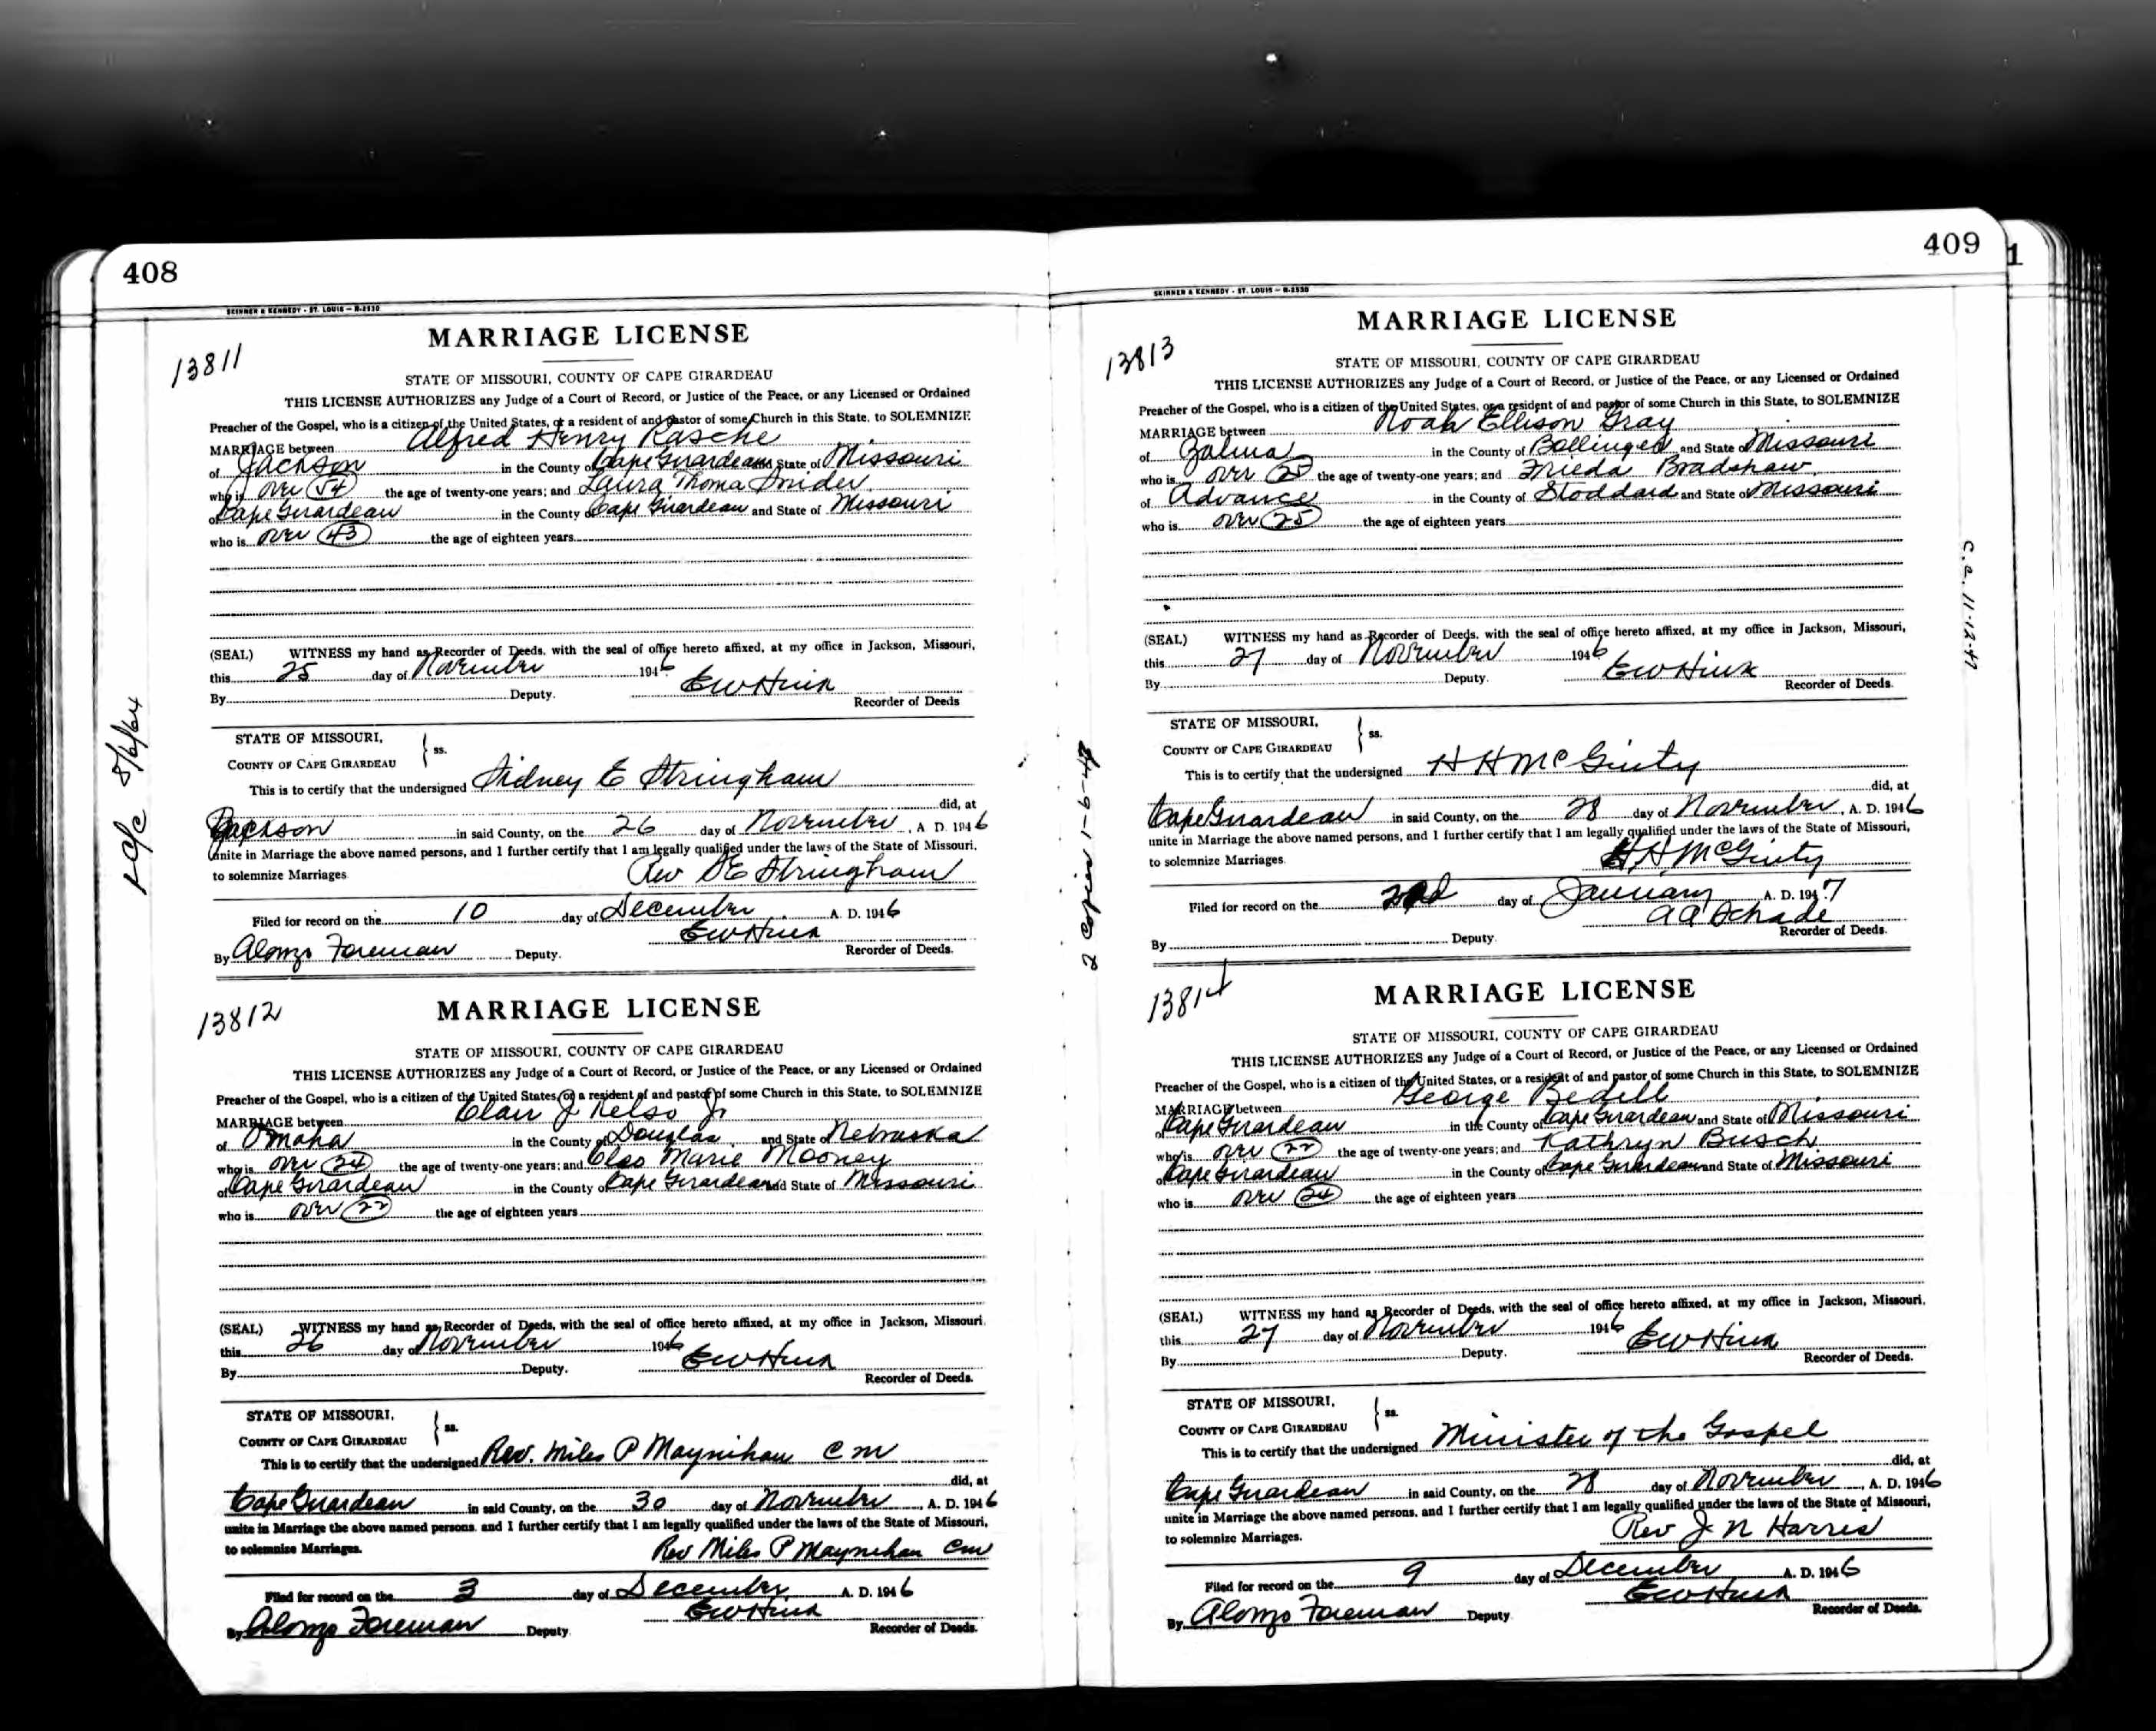 408
SKINNER & KENNEDY - ST. LOUIS - R-2530
MARRIAGE LICENSE
13811
STATE OF MISSOURI, COUNTY OF CAPE GIRARDEAU
THIS LICENSE AUTHORIZES any Judge of a Court of Record, or Justice of the Peace, or any Licensed or Ordained
Preacher of the Gospel, who is a citizen of the United States, or a resident of and pastor of some Church in this State, to SOLEMNIZE
MARRIAGE between Alfred Henry Rasche
of Jackson in the County of Cape Girardeau and State of Missouri
who is over 54 the age of twenty-one years; and Laura Thoma Snider
of Cape Girardeau in the County of Cape Girardeau and State of Missouri
who is over 43 the age of eighteen years
(SEAL) WITNESS my hand as Recorder of Deeds, with the seal of office hereto affixed, at my office in Jackson, Missouri,
this 25 day of November 1946 EW Hink
By Deputy. Recorder of Deeds
STATE OF MISSOURI,
COUNTY OF CAPE GIRARDEAU } ss.
This is to certify that the undersigned Sidney E Stringham
did, at
Jackson in said County, on the 26 day of November, A. D. 1946
unite in Marriage the above named persons, and I further certify that I am legally qualified under the laws of the State of Missouri,
to solemnize Marriages Rev SE Stringham
Filed for record on the 10 day of December A. D. 1946
EW Hink
By Alonzo Foreman Deputy. Recorder of Deeds.
8/6/64
MARRIAGE LICENSE
13812
STATE OF MISSOURI, COUNTY OF CAPE GIRARDEAU
THIS LICENSE AUTHORIZES any Judge of a Court of Record, or Justice of the Peace, or any Licensed or Ordained
Preacher of the Gospel, who is a citizen of the United States, or a resident of and pastor of some Church in this State, to SOLEMNIZE
MARRIAGE between Clair J Kelso Jr
of Omaha in the County of Douglas and State of Nebraska
who is over 24 the age of twenty-one years; and Cleo Marie Mooney
of Cape Girardeau in the County of Cape Girardeau and State of Missouri
who is over 22 the age of eighteen years
(SEAL) WITNESS my hand as Recorder of Deeds, with the seal of office hereto affixed, at my office in Jackson, Missouri.
this 26 day of November 1946 EW Hink
By Deputy. Recorder of Deeds.
STATE OF MISSOURI,
COUNTY OF CAPE GIRARDEAU } ss.
This is to certify that the undersigned Rev. Miles P Maynihan C M
did, at
Cape Girardeau in said County, on the 30 day of November, A. D. 1946
unite in Marriage the above named persons, and I further certify that I am legally qualified under the laws of the State of Missouri,
to solemnize Marriages. Rev Miles P Maynihan CM
Filed for record on the 3 day of December A. D. 1946
EW Hink
By Alonzo Foreman Deputy. Recorder of Deeds.
2 copies 1-9-47
409
1
SKINNER & KENNEDY - ST. LOUIS - R-2530
MARRIAGE LICENSE
13813
STATE OF MISSOURI, COUNTY OF CAPE GIRARDEAU
THIS LICENSE AUTHORIZES any Judge of a Court of Record, or Justice of the Peace, or any Licensed or Ordained
Preacher of the Gospel, who is a citizen of the United States, or a resident of and pastor of some Church in this State, to SOLEMNIZE
MARRIAGE between Noah Ellison Gray
of Zalma in the County of Bollinger and State of Missouri
who is over the age of twenty-one years; and Frieda Bradshaw
of Advance in the County of Stoddard and State of Missouri
who is over 25 the age of eighteen years
(SEAL) WITNESS my hand as Recorder of Deeds, with the seal of office hereto affixed, at my office in Jackson, Missouri,
this 27 day of November 1946 EW Hink
By Deputy. Recorder of Deeds.
C.C. 11-12-47
STATE OF MISSOURI,
COUNTY OF CAPE GIRARDEAU } ss.
This is to certify that the undersigned H H McGinty
did, at
Cape Girardeau in said County, on the 28 day of November, A. D. 1946
unite in Marriage the above named persons, and I further certify that I am legally qualified under the laws of the State of Missouri,
to solemnize Marriages. H H McGinty
Filed for record on the 2nd day of January A. D. 1947
A A Schade
By Deputy. Recorder of Deeds.
MARRIAGE LICENSE
13814
STATE OF MISSOURI, COUNTY OF CAPE GIRARDEAU
THIS LICENSE AUTHORIZES any Judge of a Court of Record, or Justice of the Peace, or any Licensed or Ordained
Preacher of the Gospel, who is a citizen of the United States, or a resident of and pastor of some Church in this State, to SOLEMNIZE
MARRIAGE between George Bedell
of Cape Girardeau in the County of Cape Girardeau and State of Missouri
who is over 22 the age of twenty-one years; and Kathryn Busch
of Cape Girardeau in the County of Cape Girardeau and State of Missouri
who is over 24 the age of eighteen years
(SEAL) WITNESS my hand as Recorder of Deeds, with the seal of office hereto affixed, at my office in Jackson, Missouri,
this 27 day of November 1946 EW Hink
By Deputy. Recorder of Deeds.
STATE OF MISSOURI,
COUNTY OF CAPE GIRARDEAU } ss.
This is to certify that the undersigned Minister of the Gospel
did, at
Cape Girardeau in said County, on the 28 day of November, A. D. 1946
unite in Marriage the above named persons, and I further certify that I am legally qualified under the laws of the State of Missouri,
to solemnize Marriages. Rev J N Harris
Filed for record on the 9 day of December A. D. 1946
EW Hink
By Alonzo Foreman Deputy Recorder of Deeds.